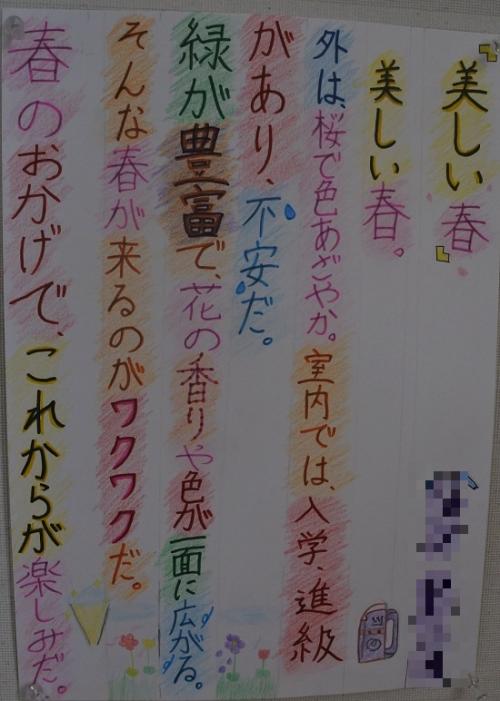 美しい春
美しい春。
外は、桜で色あざやか。室内では、入学、進級
があり、不安だ。
緑が豊富で、花の香りや色が一面に広がる。
そんな春が来るのがワクワクだ。
春のおかげで、これからが楽しみだ。